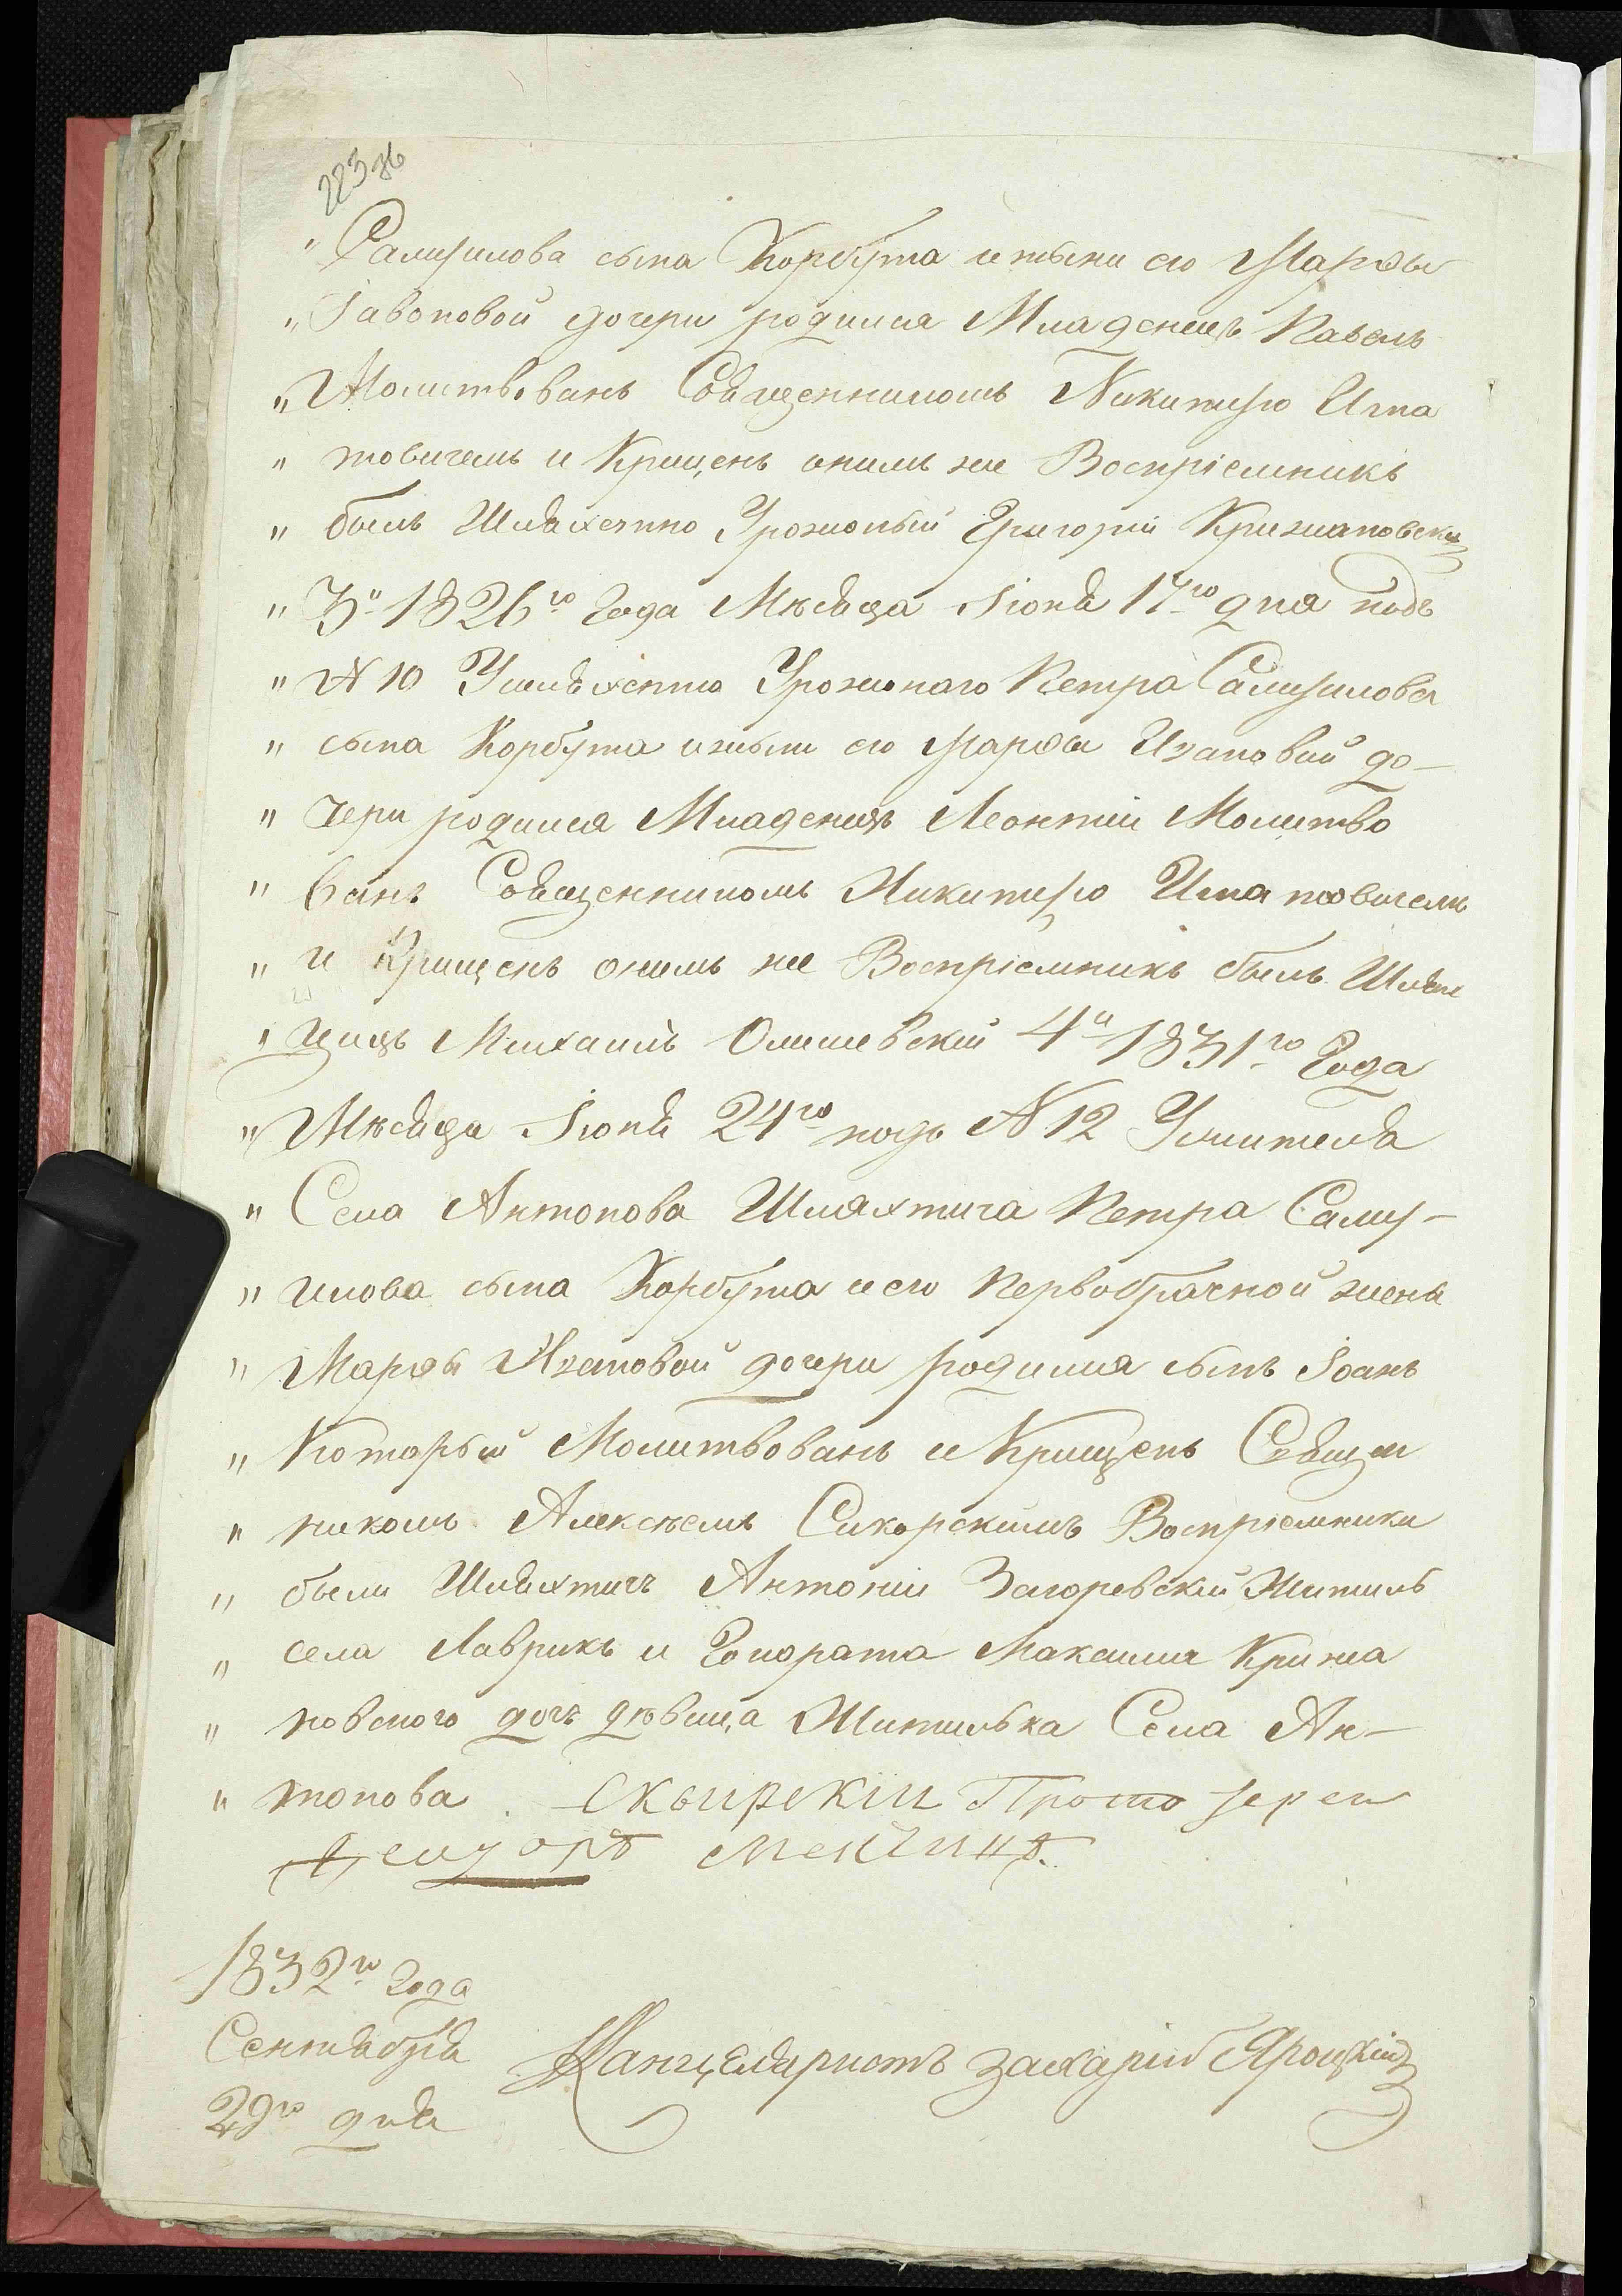 223 об
" Самуилова сына Корбута и жыни его Марфы
" Iавоновой дочери родился Младенецъ Павелъ
" Молитвованъ Священникомъ Никитою Игна
" товичемъ и Крищенъ онимъ же Воспріемникъ
" былъ Шляхетно Урожоный Григорій Крижановски
" 3й 1826го Года Мѣсяца Iюня 17го дня подъ
" N 10 У шляхетно Урожонаго Петра Самуилова
" сына Корбута и жыни его Марфы Ивановой до-
" чери родился Младенецъ Леонтій Молитво
" ванъ Священникомъ Никитою Игнатовичемъ
" и Крищенъ онимъ же Воспріемникъ былъ Шлях
" тичъ Михаилъ Олишевскій 4й 1831го Года
" Мѣсяца Iюня 24го подъ N 12 У жителя
" Села Антонова Шляхтича Петра Саму-
" илова сына Корбута и его Первобрачной жены
" Марфы Ивановой дочери родился сынъ Iоанъ
" Который Молитвованъ и Крищенъ Священ
" никомъ Алексѣемъ Сикорскимъ Воспріемники
" были Шляхтичъ Антоній Загоревскій Житиль
" села Лаврикъ и Гонората Максима Крижа
" новского дочъ дѣвица Житилька Села Ан-
" тонова. Сквирскіи Протоіереи
Цензоръ
1832го Года
Сентября
29го дня
Канцеляристъ Захарій Яроцкій